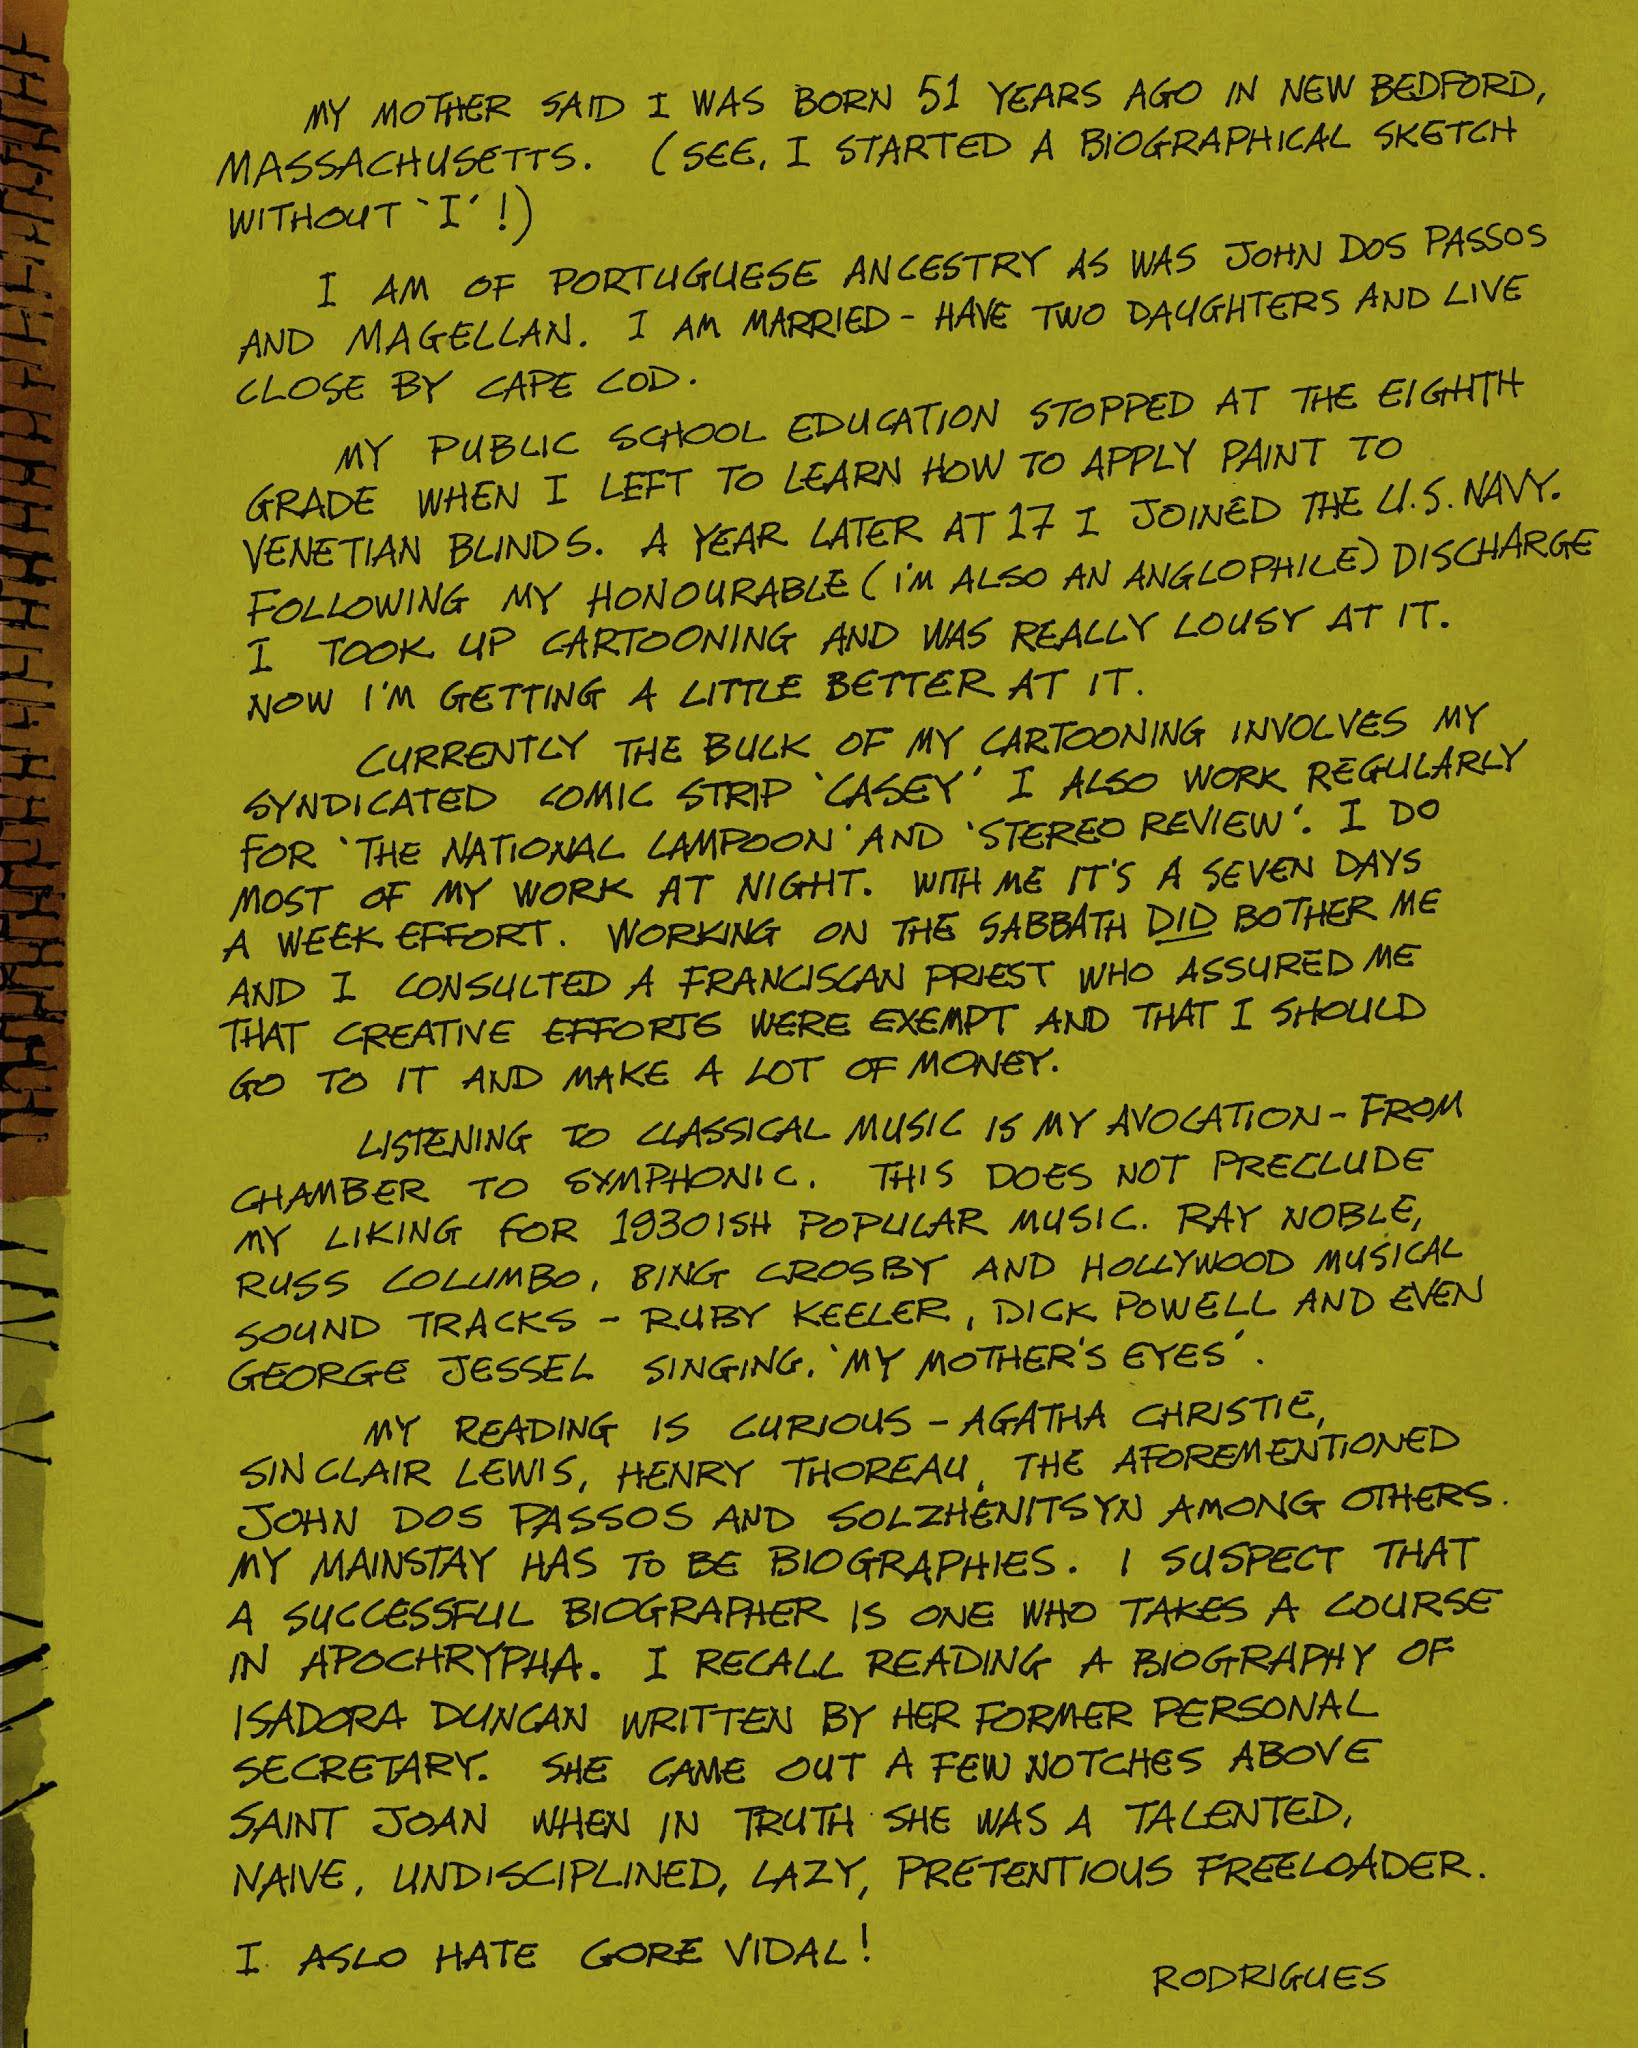 MY MOTHER SAID I WAS BORN 51 YEARS AGO IN NEW BEDFORD,
MASSACHUSETTS. (SEE, I STARTED A BIOGRAPHICAL SKETCH
WITHOUT 'I'!)
I AM OF PORTUGUESE ANCESTRY AS WAS JOHN DOS PASSOS
AND MAGELLAN. I AM MARRIED - HAVE TWO DAUGHTERS AND LIVE
CLOSE BY CAPE COD.
MY PUBLIC SCHOOL EDUCATION STOPPED AT THE EIGHTH
GRADE WHEN I LEFT TO LEARN HOW TO APPLY PAINT TO
VENETIAN BLINDS. A YEAR LATER AT 17 I JOINED THE U.S. NAVY.
FOLLOWING MY HONOURABLE (I'M ALSO AN ANGLOPHILE) DISCHARGE
I TOOK UP CARTOONING AND WAS REALLY LOUSY AT IT.
NOW I'M GETTING A LITTLE BETTER AT IT.
CURRENTLY THE BULK OF MY CARTOONING INVOLVES MY
SYNDICATED COMIC STRIP 'CASEY' I ALSO WORK REGULARLY
FOR 'THE NATIONAL LAMPOON' AND 'STEREO REVIEW'. I DO
MOST OF MY WORK AT NIGHT. WITH ME IT'S A SEVEN DAYS
A WEEK EFFORT. WORKING ON THE SABBATH DID BOTHER ME
AND I CONSULTED A FRANCISCAN PRIEST WHO ASSURED ME
THAT CREATIVE EFFORTS WERE EXEMPT AND THAT I SHOULD
GO TO IT AND MAKE A LOT OF MONEY.
LISTENING TO CLASSICAL MUSIC IS MY AVOCATION - FROM
CHAMBER TO SYMPHONIC. THIS DOES NOT PRECLUDE
MY LIKING FOR 1930ISH POPULAR MUSIC. RAY NOBLE,
RUSS COLUMBO, BING CROSBY AND HOLLYWOOD MUSICAL
SOUND TRACKS - RUBY KEELER, DICK POWELL AND EVEN
GEORGE JESSEL SINGING. 'MY MOTHER'S EYES'.
MY READING IS CURIOUS - AGATHA CHRISTIE,
SINCLAIR LEWIS, HENRY THOREAU, THE AFOREMENTIONED
JOHN DOS PASSOS AND SOLZHENITSYN AMONG OTHERS.
MY MAINSTAY HAS TO BE BIOGRAPHIES. I SUSPECT THAT
A SUCCESSFUL BIOGRAPHER IS ONE WHO TAKES A COURSE
IN APOCHRYPHA. I RECALL READING A BIOGRAPHY OF
ISADORA DUNCAN WRITTEN BY HER FORMER PERSONAL
SECRETARY. SHE CAME OUT A FEW NOTCHES ABOVE
SAINT JOAN WHEN IN TRUTH SHE WAS A TALENTED,
NAIVE, UNDISCIPLINED, LAZY, PRETENTIOUS FREELOADER.
I ASLO HATE GORE VIDAL!
RODRIGUES